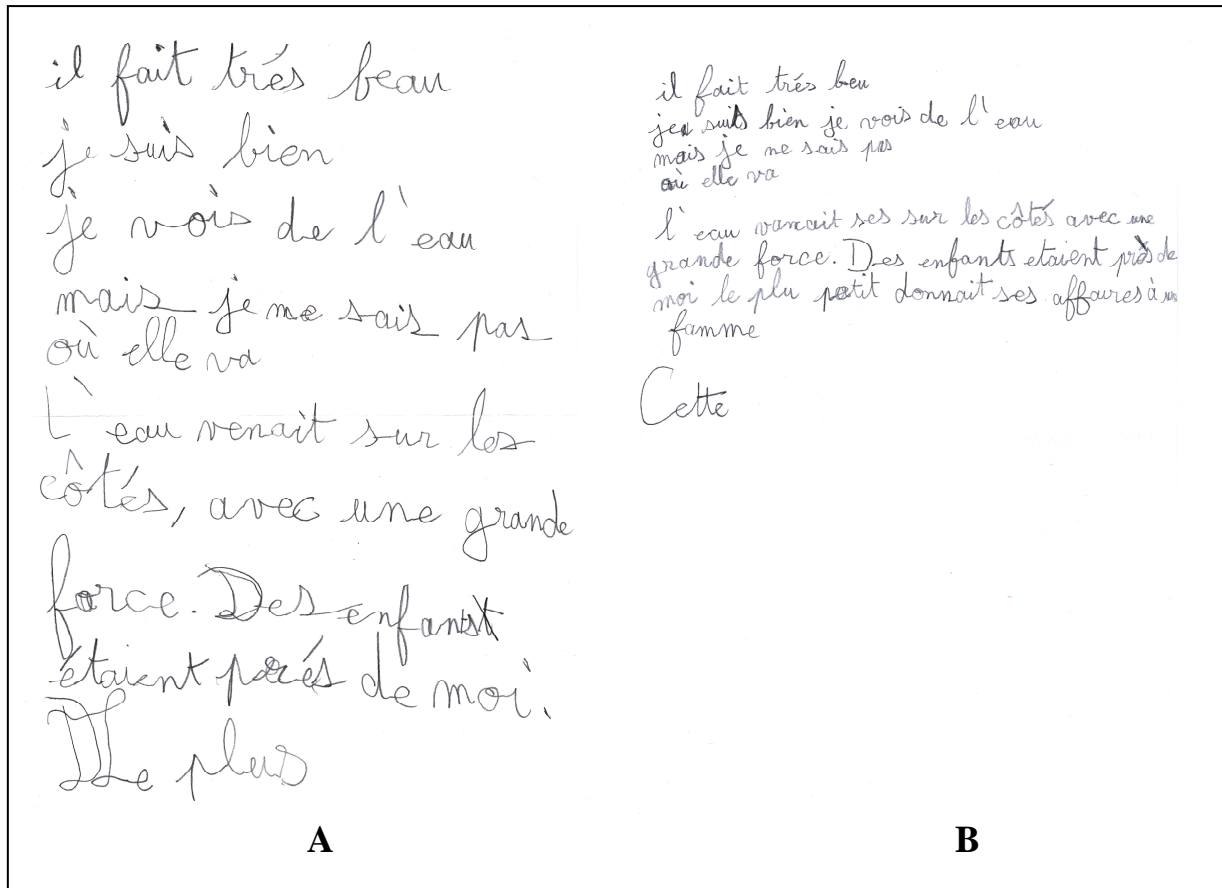 il fait trés beau
je suis bien
je vois de l'eau
mais je ne sais pas
où elle va
L'eau venait sur les
côtés, avec une grande
force. Des enfants
étaient prés de moi.
Le plus
A
il fait trés beu
je suis bien je vois de l'eau
mais je ne sais pas
où elle va
l'eau vancait ses sur les côtés avec une
grande force. Des enfants etaient près de
moi le plu petit donnait ses affaires à un
famme
Cette
B